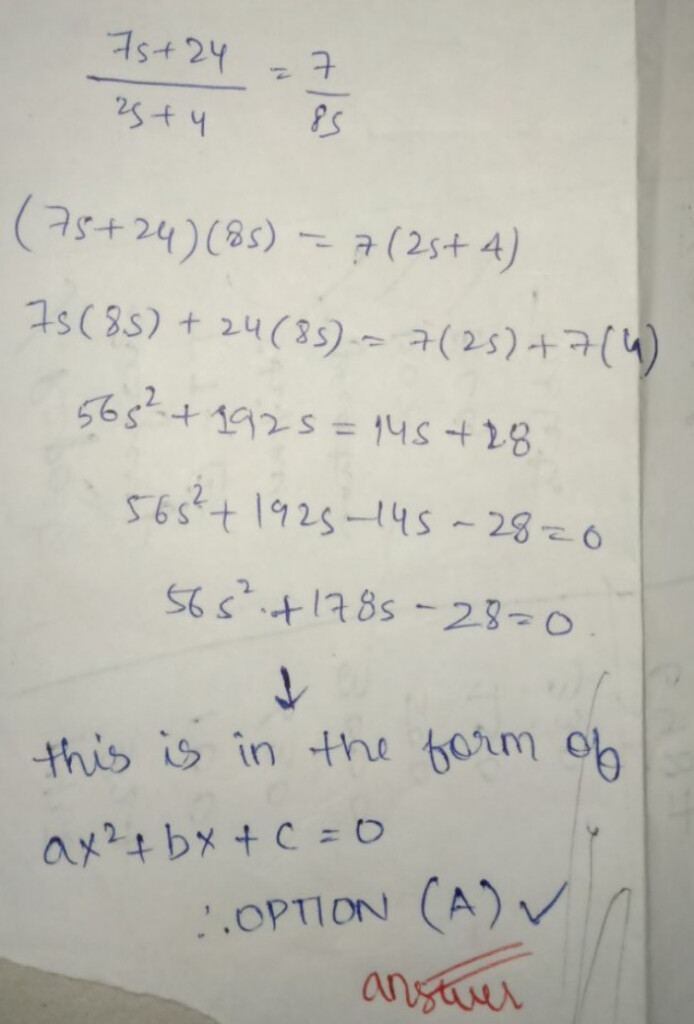 7s+24 = 7
2s+4 8s
(7s+24)(8s) = 7(2s+4)
7s(8s) + 24(8s) = 7(2s)+7(4)
56s²+192s = 14s+28
56s²+192s-14s-28=0
56s²+178s-28=0.
↓
this is in the form of
ax²+bx+c=0
∴OPTION (A) ✓
answer